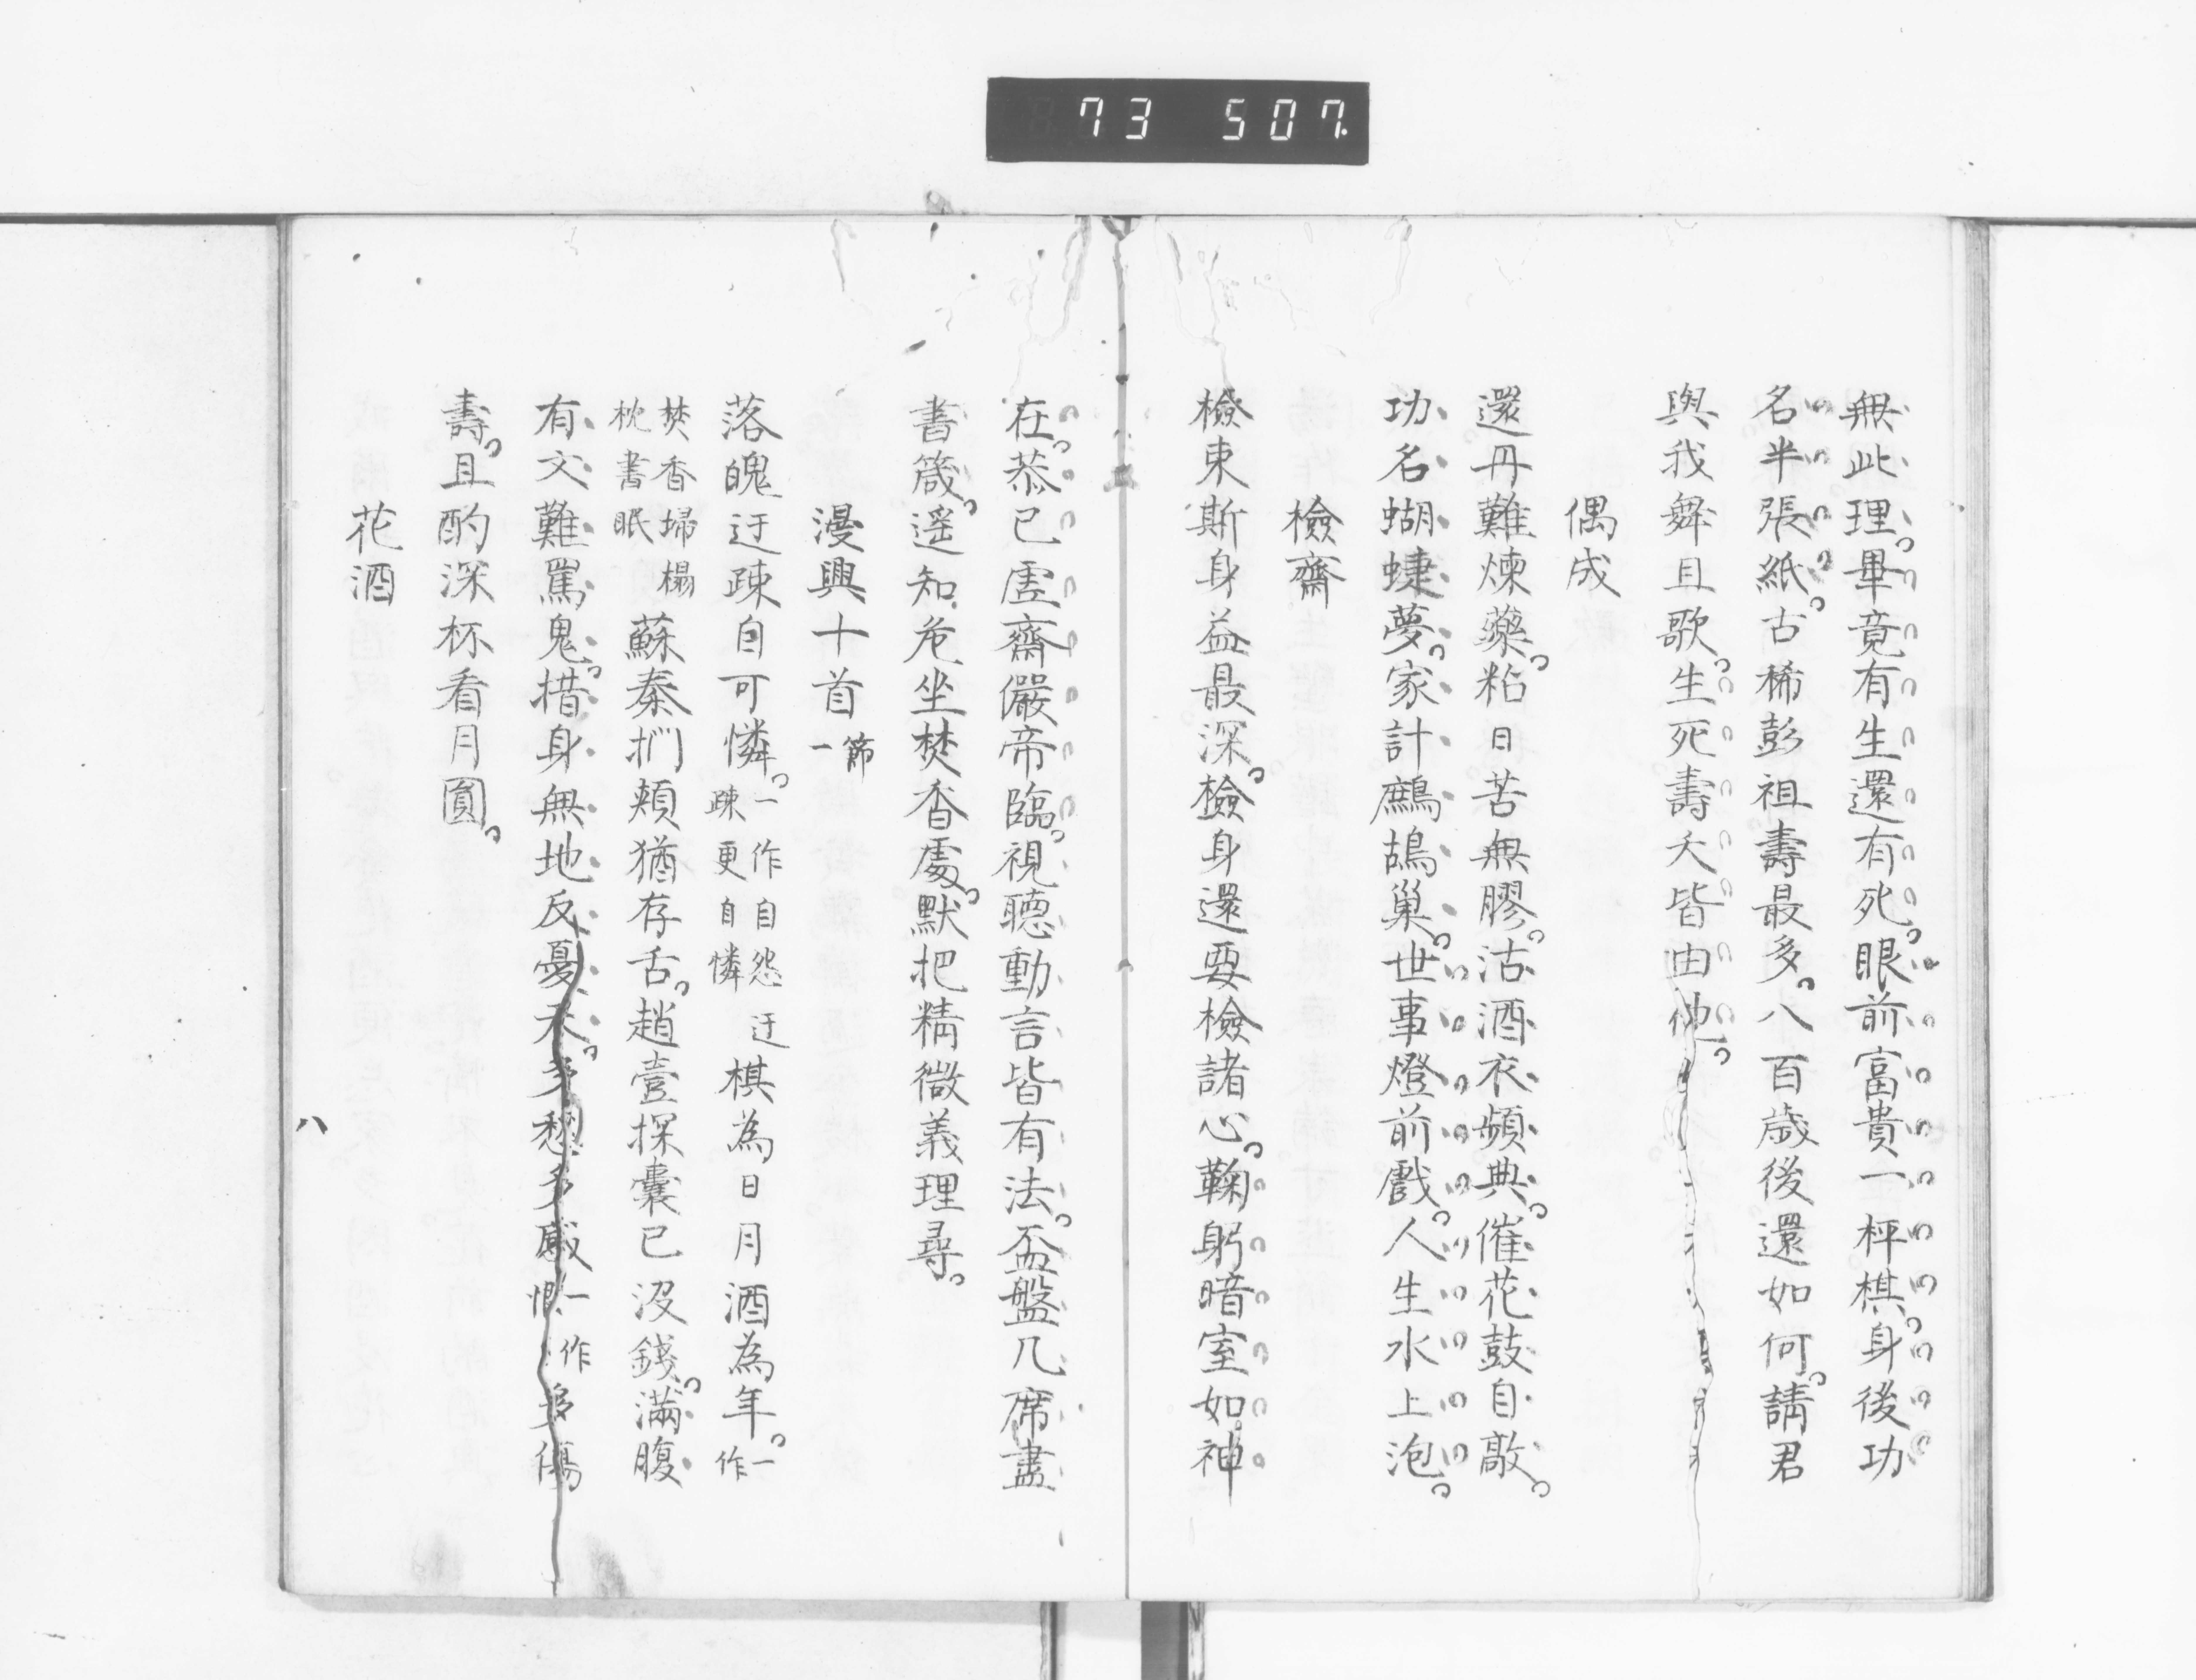 73 507
無此理。畢竟有生還有死。眼前富貴一枰棋。身後功
名半張紙。古稀彭祖壽最多。八百歲後還如何。請君
與我舞且歌。生死壽夭皆由他。
偶成
還丹難煉藥。粘日苦無膠。沽酒衣頻典。催花鼓自敲。
功名蝴蝶夢。家計鷓鴣巢。世事燈前戲。人生水上泡。
檢齋
檢束斯身益最深。檢身還要檢諸心。鞠躬暗室如神
在。恭己虛齋儼帝臨。視聽動言皆有法。盃盤几席盡
書箴。遥知危坐焚香處。默把精微義理尋。
漫興十首 一節
落魄迂疎自可憐。一作自怨迂疎更自憐 棋為日月酒為年。一作
焚香埽榻枕書眠 蘇秦捫頰猶存舌。趙壹探囊已沒錢。滿腹
有文難罵鬼。措身無地反憂天。多愁多感一作多傷
壽。且酌深杯看月圓。
花酒
八